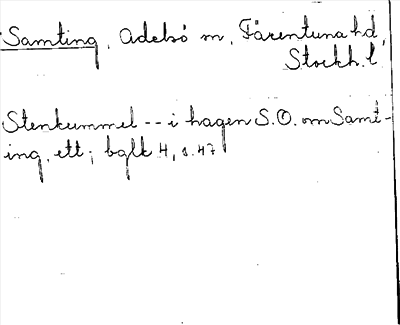 Samting, Adelsö sn, Färentuna hd,
Stockh. l.
Stenkummel -- i hagen S.O. om Samt-
ing, ett; bglk 4, s. 47